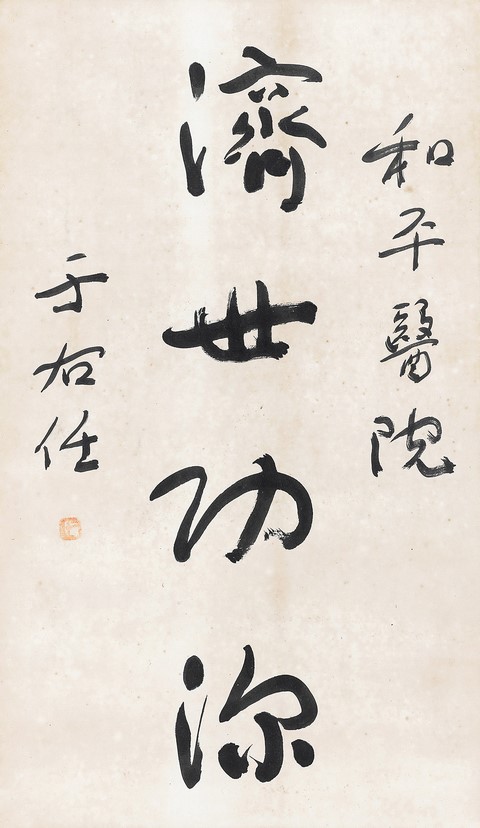 和平醫院
濟世功深
于右任